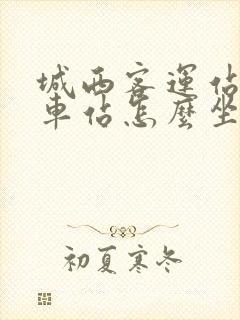 城西客運佔
車佔怎麼坐
初夏寒冬